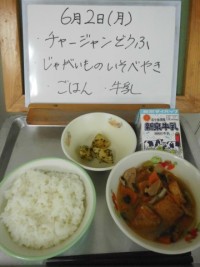 6月2日(月)
・チャージャンどうふ
じゃがいものいそべやき
ごはん ・牛乳
牛乳